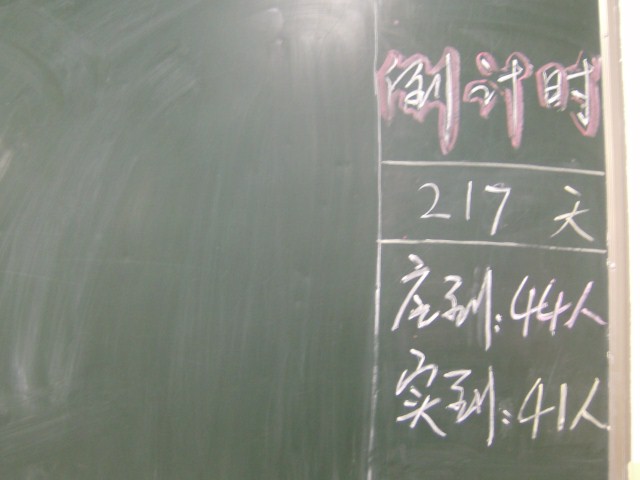 倒计时
217 天
应到:44人
实到:41人